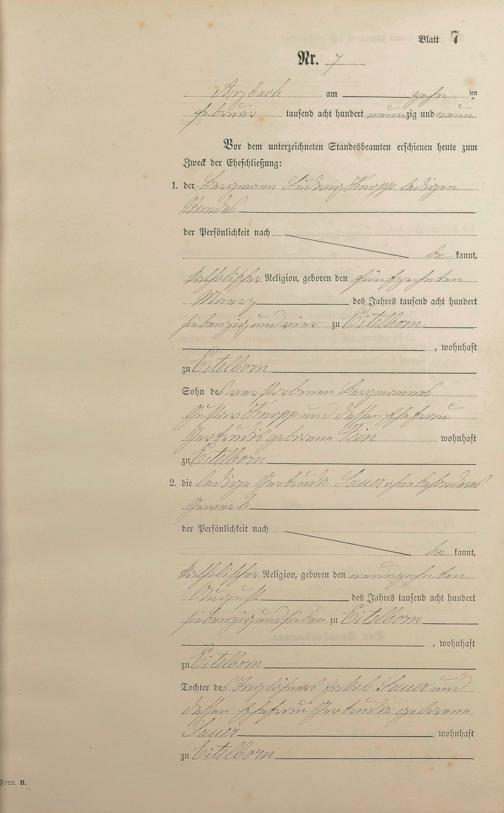 Blatt 7
Nr. 7
Arzbach am zehn ten
Februar tausend acht hundert neunzig und neun
Vor dem unterzeichneten Standesbeamten erschienen heute zum
Zweck der Eheschließung:
1. der Bergmann Ludwig Knopp ledigen
Standes
der Persönlichkeit nach
be kannt,
katholischer Religion, geboren den fünfzehnten
Maerz des Jahres tausend acht hundert
siebenzig und vier zu Eitelborn
, wohnhaft
zu Eitelborn
Sohn des verstorbenen Bergmannes
Knopp und dessen Ehefrau
Gertrude geborene wohnhaft
zu Eitelborn
2. die ledige Gertrude Sauer ohne besonderes
Gewerb
der Persönlichkeit nach
be kannt,
katholischer Religion, geboren den neunzehnten
August des Jahres tausend acht hundert
siebenzig und sieben zu Eitelborn
, wohnhaft
zu Eitelborn
Tochter des Taglöhners Jakob Sauer und
dessen Ehefrau Gertrude geborene
Sauer wohnhaft
zu Eitelborn
Form. B.